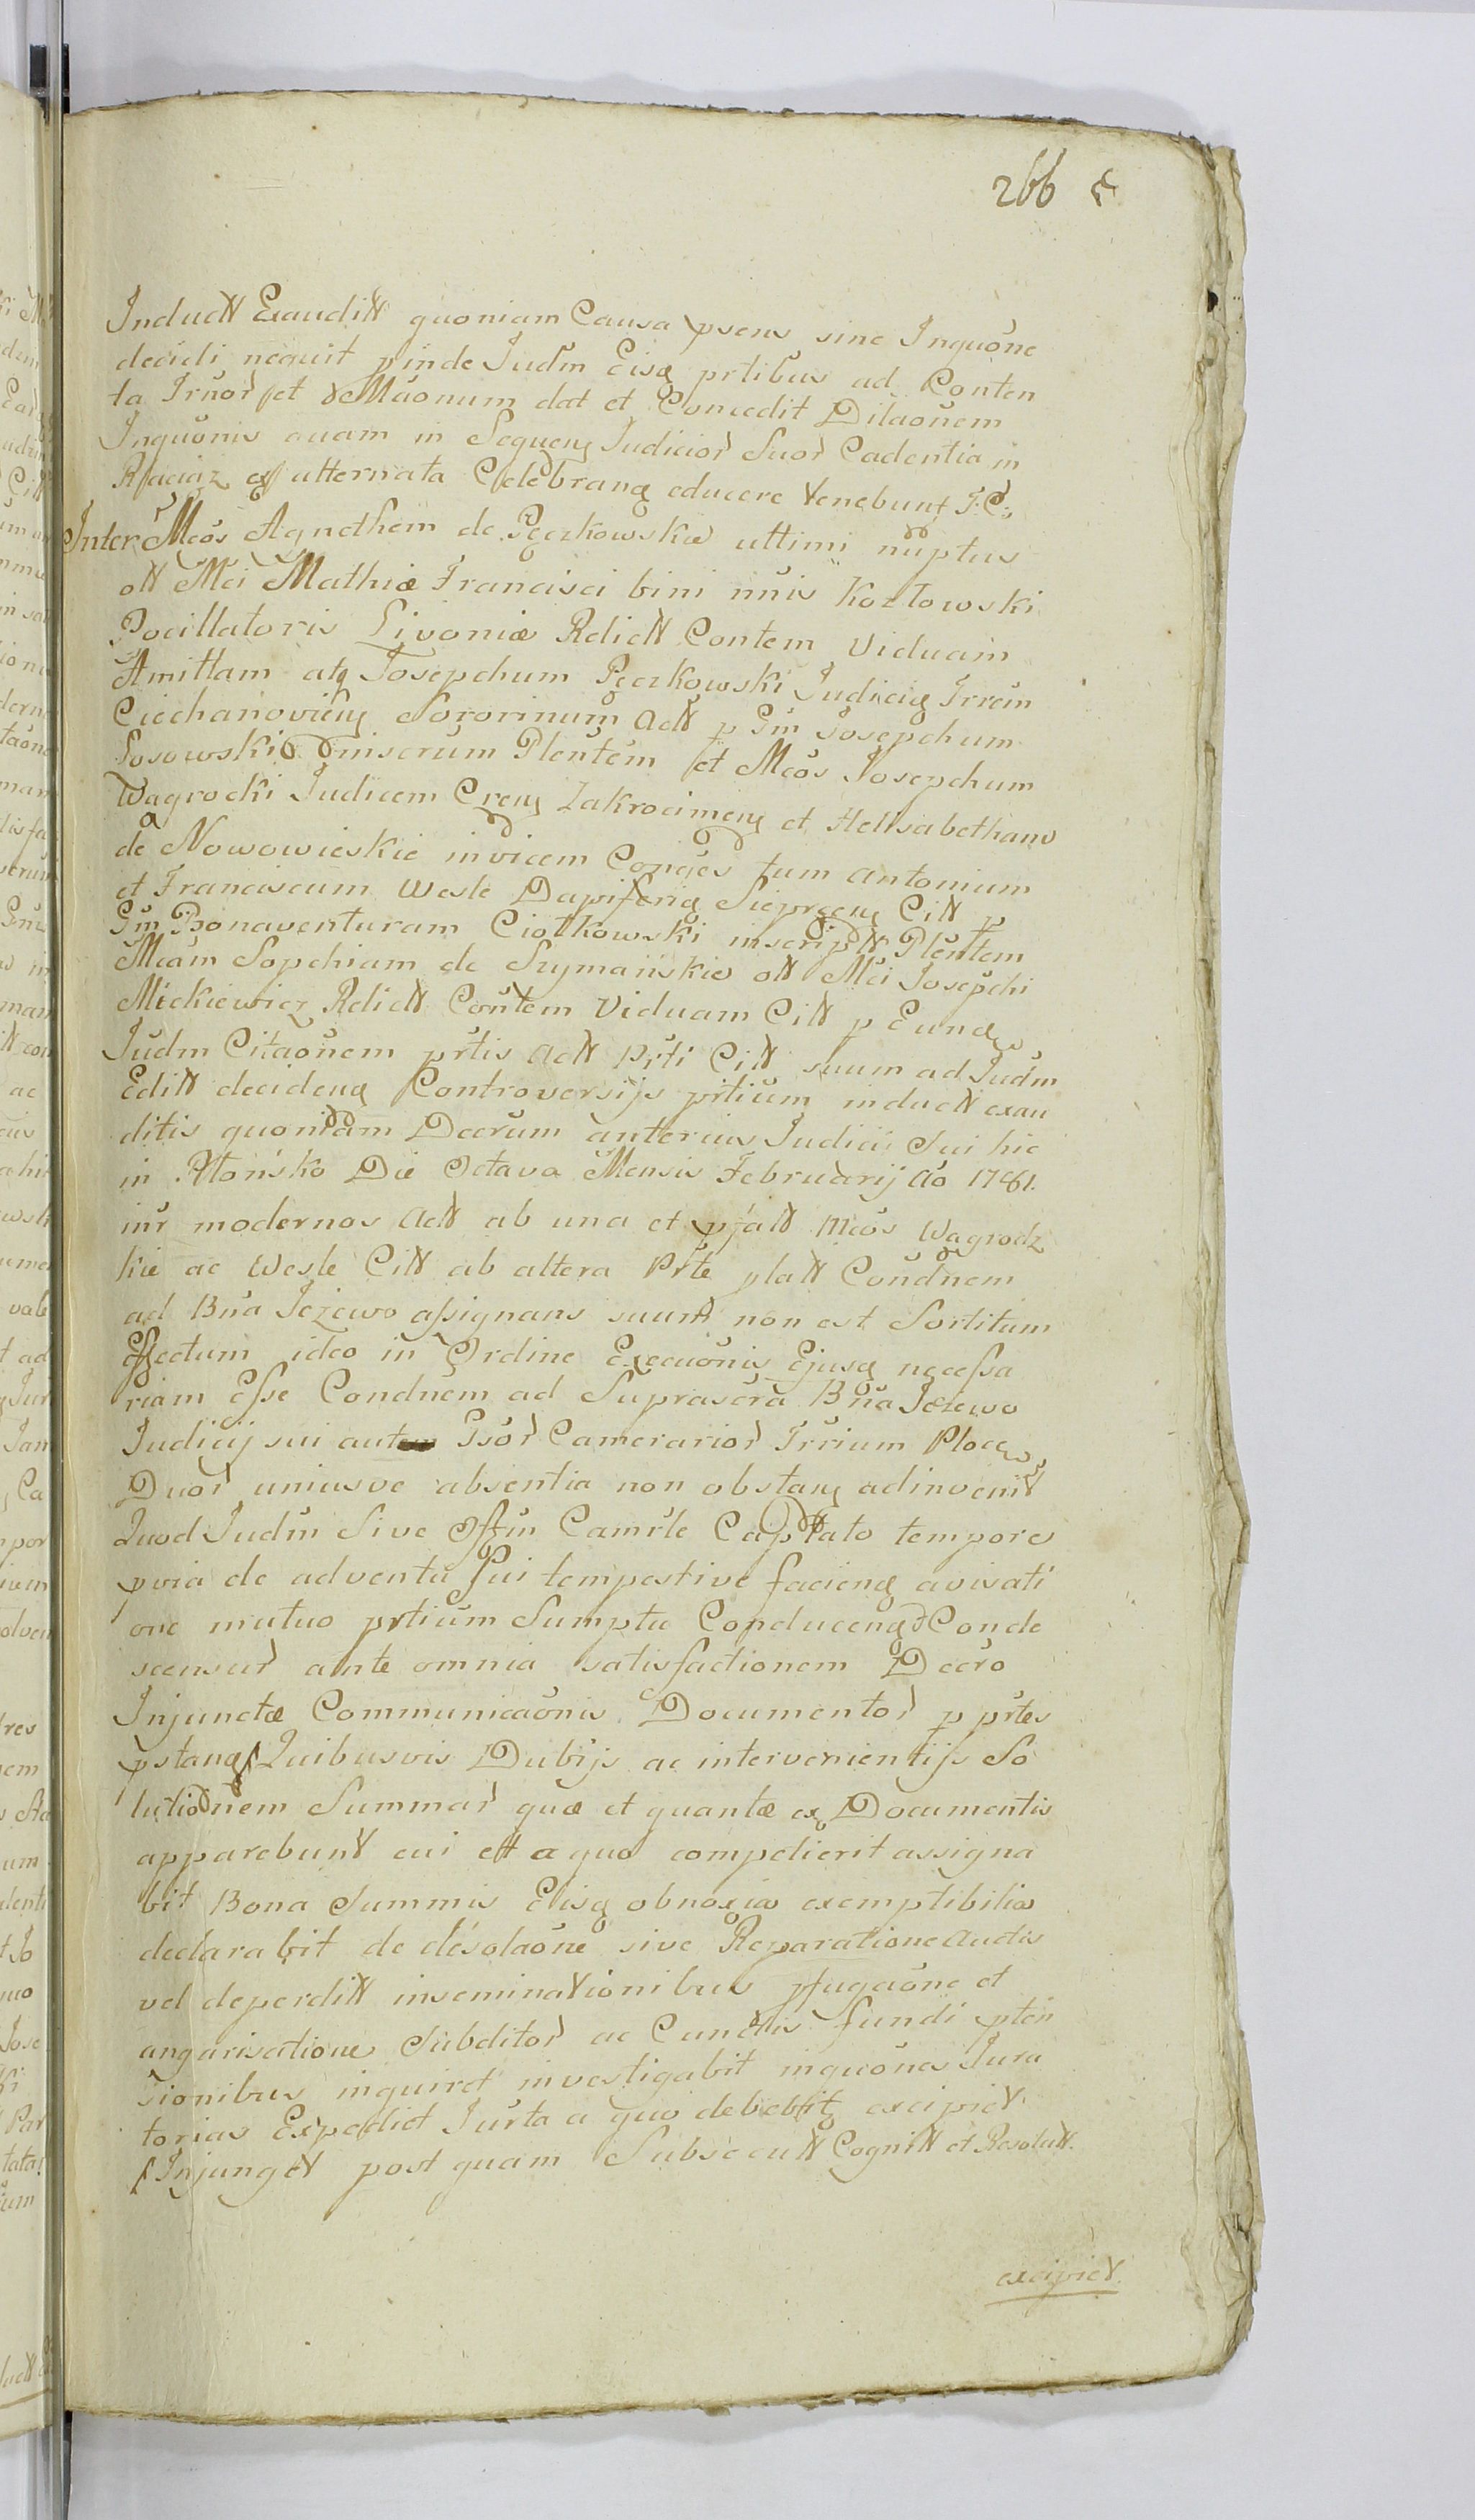 266
Induct Exaudit quoniam Causa psens sine Inquōne
decidi nequit pinde Judm Eisq prtibus ad Conten
ta Jrūor et deMāonum dat et Concedit Dilaōnem
Inquōnis quam in Sequenq Judicior Suor Cadentia in
Raciąz ex alternata Celebranq educere tenebunt J.C.
Inter Mcos Agnethem de Pęczkowskie ultimi nuptus
olt Mci Mathiæ Francisci bini nūis Kozłowski
Pocillatoris Livoniæ Relict Contem Viduam
Amittam atq Josepchum Pęczkowski Judicig Trrem
Ciechanoviens Sororinum Act p Gm Josepchum
Sosowski Dmiserum Plentem et Mcos Josepchum
Wagrocki Judicem Crens Zakrocimens et Helisabetham
de Nowowieskie invicem Conges tum Antonium
et Franciscum Wesle Dapiferiq Sieprcens Citt p
Gm Bonaventuram Ciołkowski inscript Plentem
Mcam Sopchiam de Szymańskie olt Mci Josepchi
Mickiewicz Relict Contem Viduam Citt p Eunq
Judm Citaōnem prtis Act Prti Citt suum ad Judm
Edit decidenq Controversijs prtium induct exau
ditis quoniam Decrum anterius Judicij Sui hic
in Płońsko Die Octava Mensis Februarij Ao 1781.
inr modernos Act ab una et pfatt Mcos Wagrodz
kie ac Wesle Citt ab altera Prte platt Condnem
ad Bna Jeżewo assignans suum non est Sortitum
Effectum ideo in Ordine Execuōnis Ejusq necessa
riam Esse Condnem ad Suprascra Bna Jeżewo
Judicij sui autem Gsor Camerarior Trrium Ploce
Duor uniusve absentia non obstanq adinvenit
Quod Judm Sive Offm Camrle Captato tempore
pvia de adventu Sui tempestive facienq avisati
one mutuo prtium Sumptu Conducenq Conde
scensur ante omnia satisfactionem Decro
Injunctæ Communicaōnis Documentor p prtes
pstanq Quibusvis Dubijs ac intervenientijs So
lutionem Summar quæ et quantæ ex Documentis
apparebunt cui et a quo competierit assigna
bit Bona Summis Eisq obnoxia exemptibilia
declarabit de désolaōne sive Reparatione Audis
vel deperdit inseminationibus pfugaōne et
angarisatione Subditor ac Cunctis fundi pten
sionibus inquiret investigabit inquōnes Jura
torias Expediet Jurta a quo debebit excipiet
Injunget post quam Subsecutt Cognitt et Resolutt.
excipiet